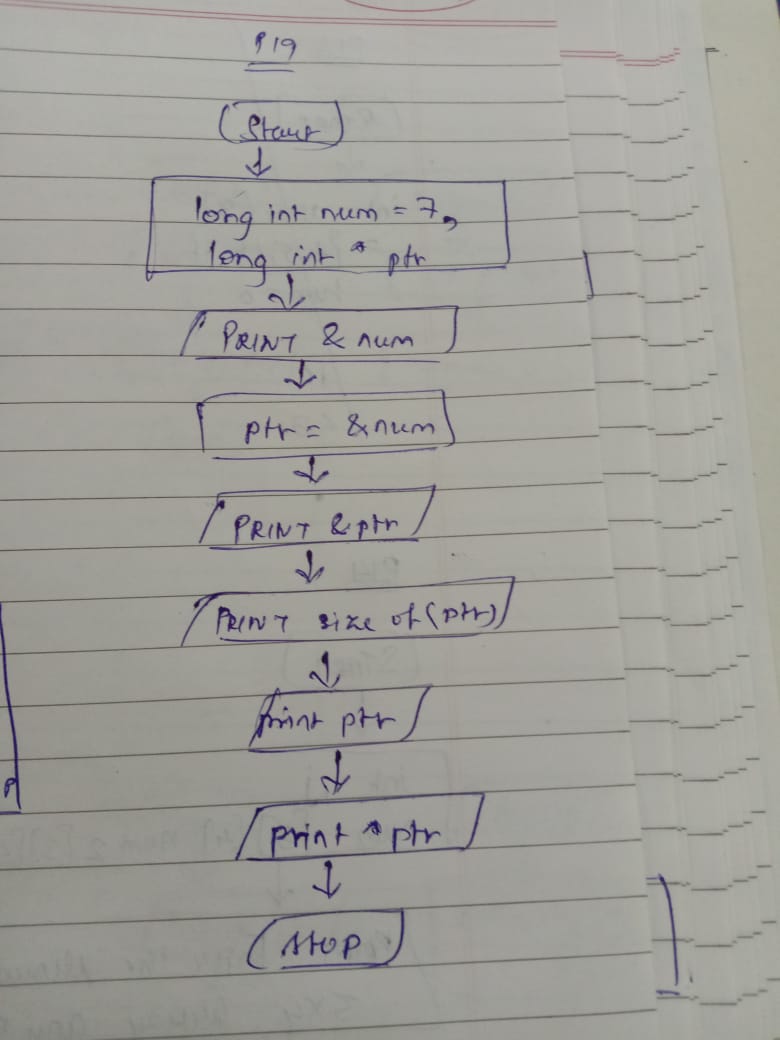 P19
Start
long int num = 7,
long int * ptr
PRINT & num
ptr = &num
PRINT & ptr
PRINT size of (ptr)
print ptr
print * ptr
STOP
P